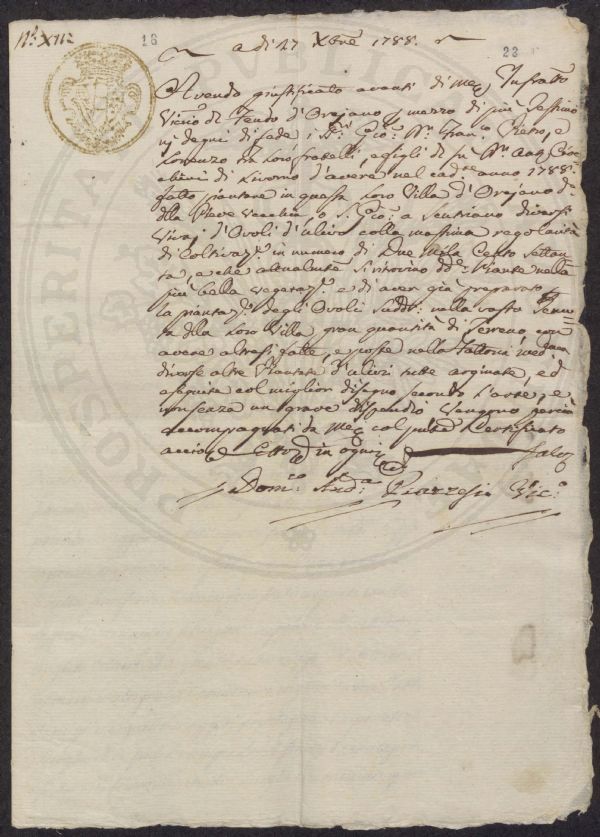 N.º XII
16
23
a dì 27 Xbre 1788.
Avendo giustificato avanti di me Infrastto
Vicrio di Feudo d'Orciano p mezzo di più Testimo
nj degni di fede i SS.ri Gio: Bta Franco Pietro, e
Lorenzo fra loro fratelli, e figli di fu
di Livorno d'avere nel cadte anno 1788.
fatto piantare in questa loro Villa d'Orciano da
della Pieve Vecchia, o S. Gio: a diversi
Vivaj d'Ovoli d'ulivo colla massima regolarità
di Coltivaze in numero di Due Mila Cento Settan
ta, e che attualmte si ritrovino dde Piante nella
più bella vegetaze e di aver già preparato p
la piantaze degli Ovoli sudti nella vasta Tenu
ta della loro Villa gran quantità di Terreno, con
avere altresì fatte, e poste nella Fattoria medma
diverse altre Piantate d'ulivi tutte arginate, ed
eseguite col miglior disegno secondo l'arte, e
non senza un grave dispendio Vengono perciò
accompagnati da me col pnte Certificato
acciò in ogni
Domco Andra Vico